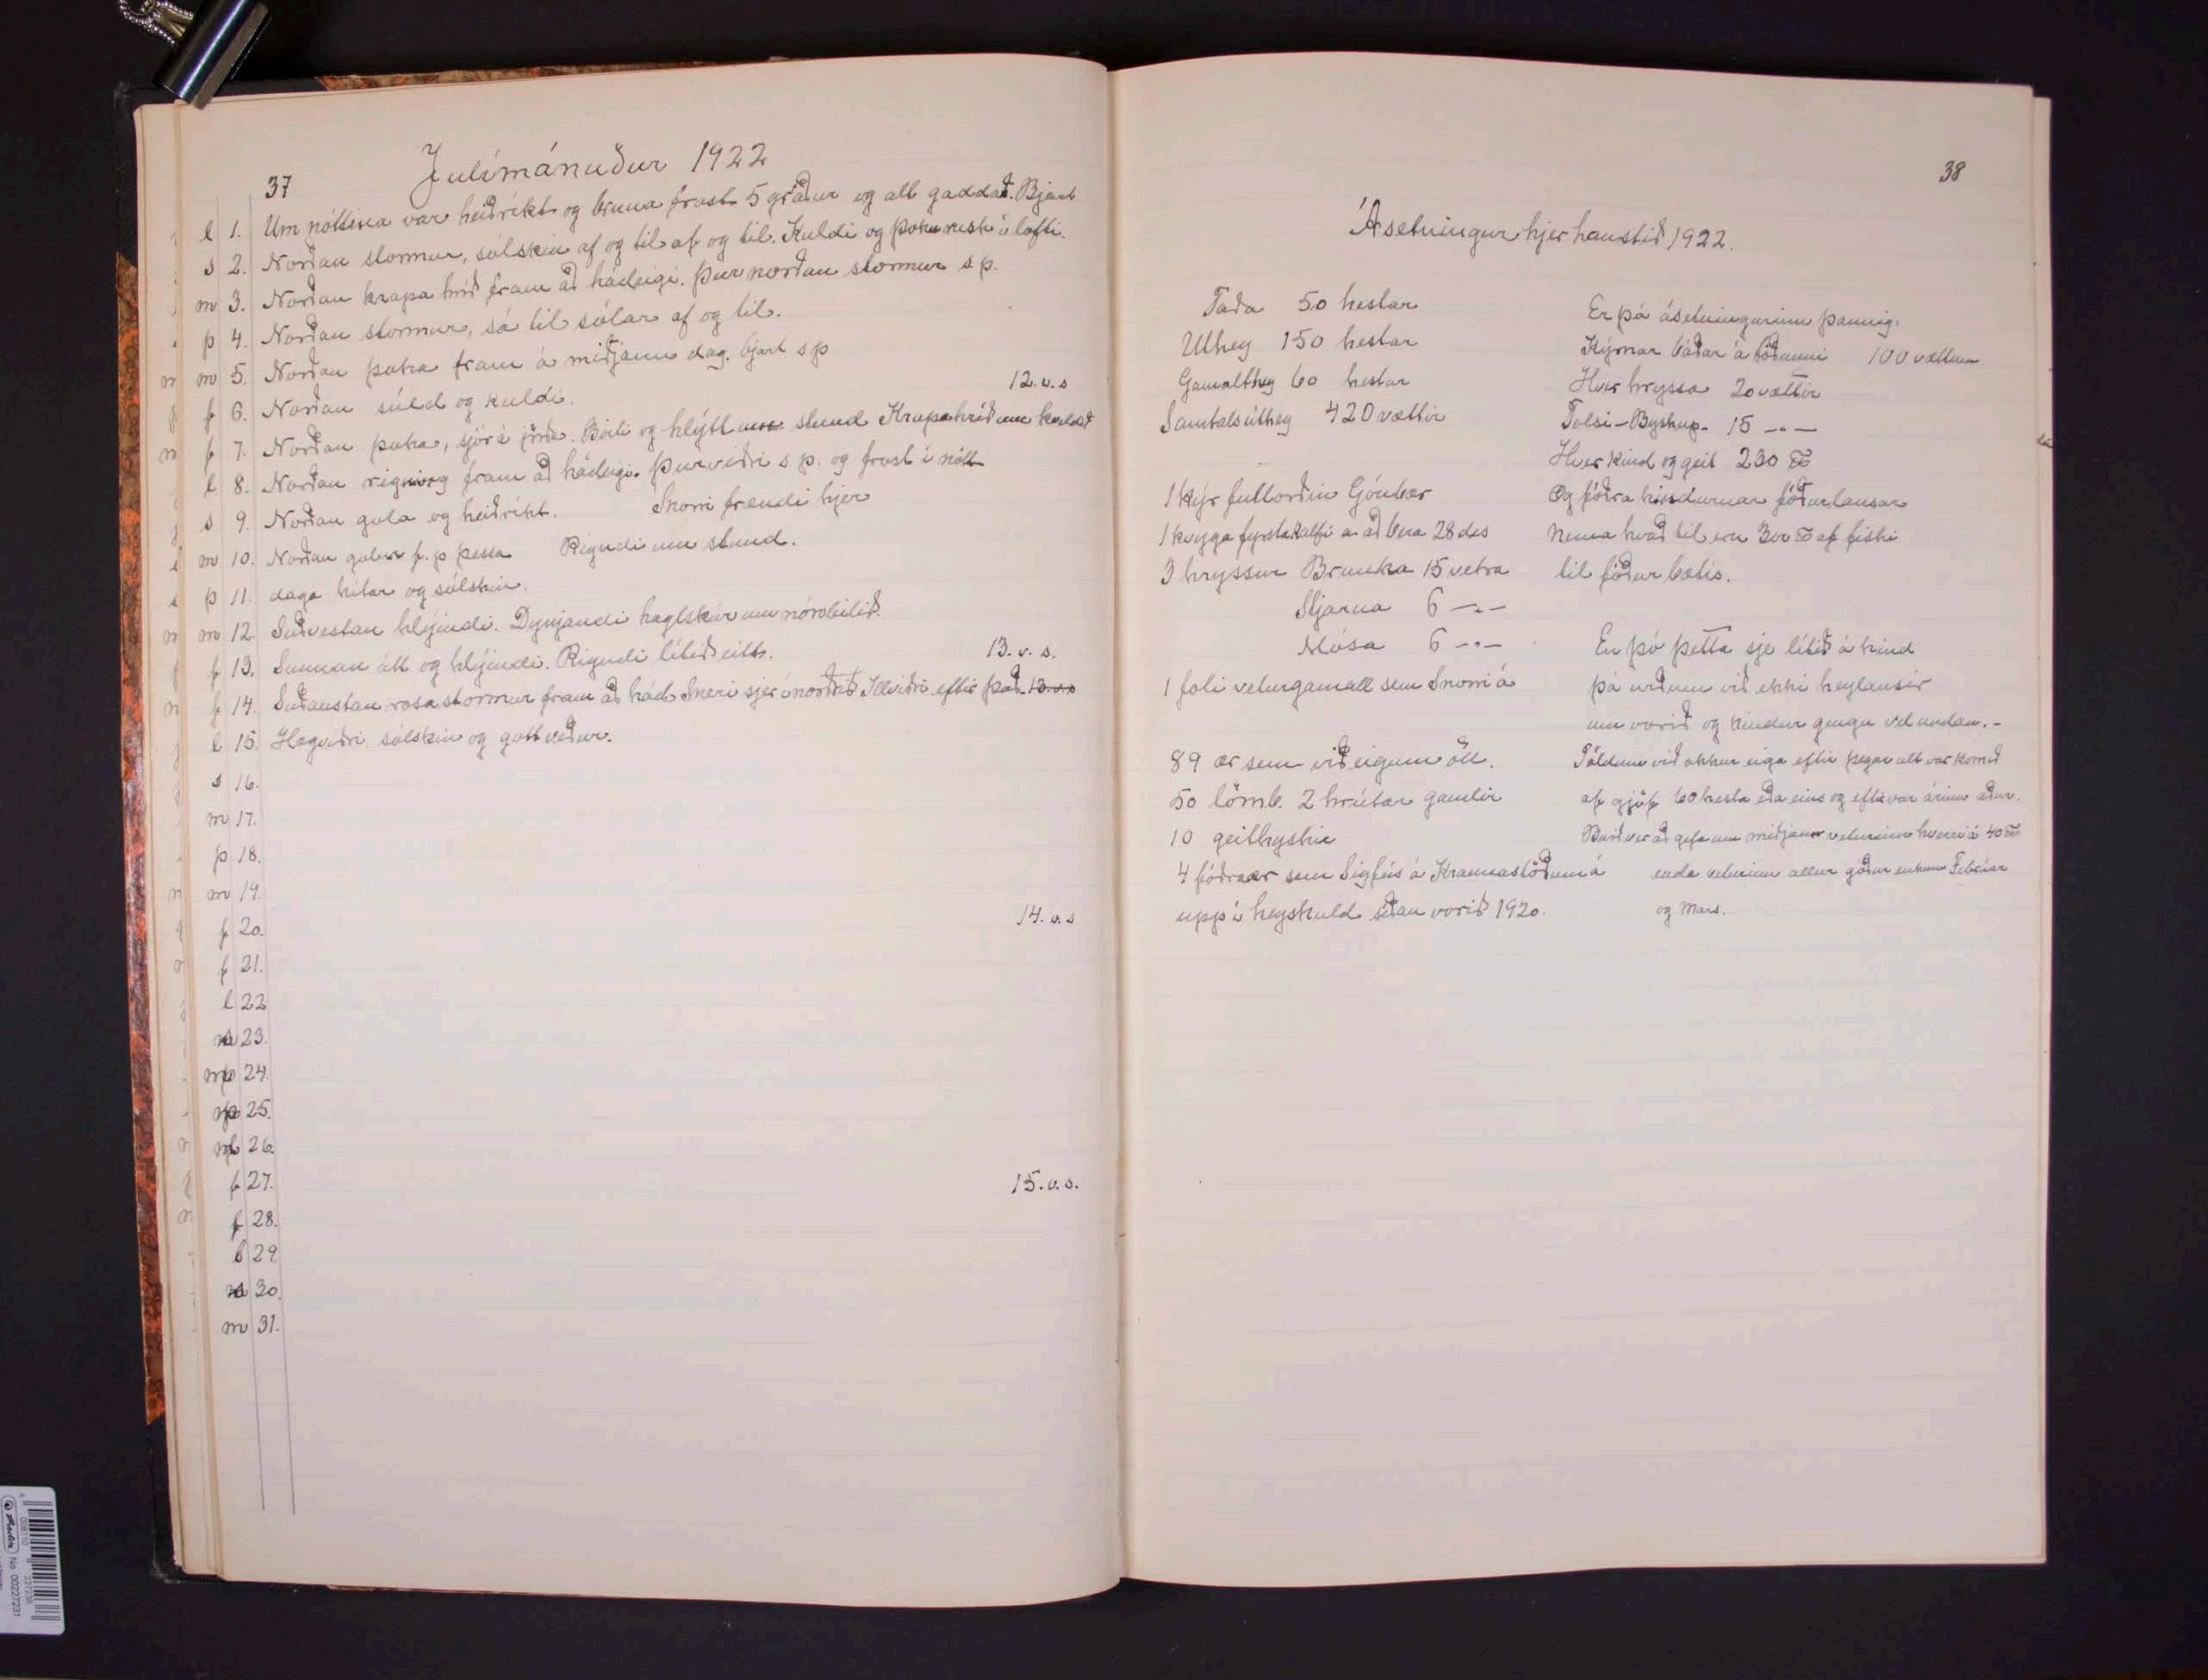 37 Julímánuður 1922
l 1. Um nóttina var heiðríkt og bruna frost 5 gráður og alt gaddað. Bjart
s 2. Norðan stormur, sólskin af og til af og til. Kuldi og þoku rusk í lofti.
m 3. Norðan krapa hríð fram að hádeigi. Þur norðan stormur s p.
þ 4. Norðan stormur, sá til sólar af og til.
m 5. Norðan þoka fram á miðjann dag. bjart s p
f 6. Norðan súld og kuldi. 12. v. s
f 7. Norðan þoka, sjór á jörða. og hlýtt um stund Krapahríð um kveldið
l 8. Norðan rigning fram að hádeigi. Þurviðri s p. og frost í nótt
s 9. Norðan gola og heiðríkt. Snorri frændi hjer
m 10. Norðan golur f. p þessa Rigndi um stund.
þ 11. daga hitar og sólskin.
m 12. Suðvestan hlýindi. Dynjandi haglskúr um nónbilið.
f 13. Sunnan átt og hlýindi. Rigndi lítið eitt. 13. v. s.
f 14. Suðaustan rosastormur fram að hád. Sneri sjer í norðrið Illviðri eftir það. 13. v. s
l 15. Hægviðri sólskin og gott veður.
s 16.
m 17.
þ 18.
m 19.
f 20. 14. v. s
f 21.
l 22
s 23.
m 24.
þ 25.
m 26.
f 27. 15. v. s.
f 28.
l 29
s 30.
m 31.
38
Ásetningur hjer haustið 1922.
Taða 50 hestar
Úthey 150 hestar
Gamalthey 60 hestar
Samtals úthey 420 vættir
1 kýr fullorðin Góubær
1 kvyga fyrsta kálfi a að bera 28 des
3 hryssur Brunka 15 vetra
Stjarna 6 -„-
Mósa 6 -„-
1 foli veturgamall sem Snorri á
89 ær sem við eigum öll.
50 lömb. 2 hrútar gamlir
10 geithystir
4 fóðraær sem Sigfús á Kramastöðum á
upp í heyskuld síðan vorið 1920.
Er þá ásetningurinn þannig.
Kýrnar báðar á töðunni 100 vættum
Hver hryssa 20 vættir
Tolsi-Byskup- 15 -„-
Hver kind og geit 230 ℔
Og fóðra hindurnar fóðurlausar
nema hvað til eru 300 ℔ af fiski
til fóður bætis.
En þó þetta sje lítið á kind
þá urðum við ekki heylausir
um vorið og kindur gengu vel undan.-
Töldum við okkur eiga eftir þegar alt var komið
af gjöf 60 hesta eða eins og eftir var árinu áður.
Búið var að gefa um miðjann veturinn hverri á 40 ℔
enda veturinn allur góður enkum Febrúar
og Mars.